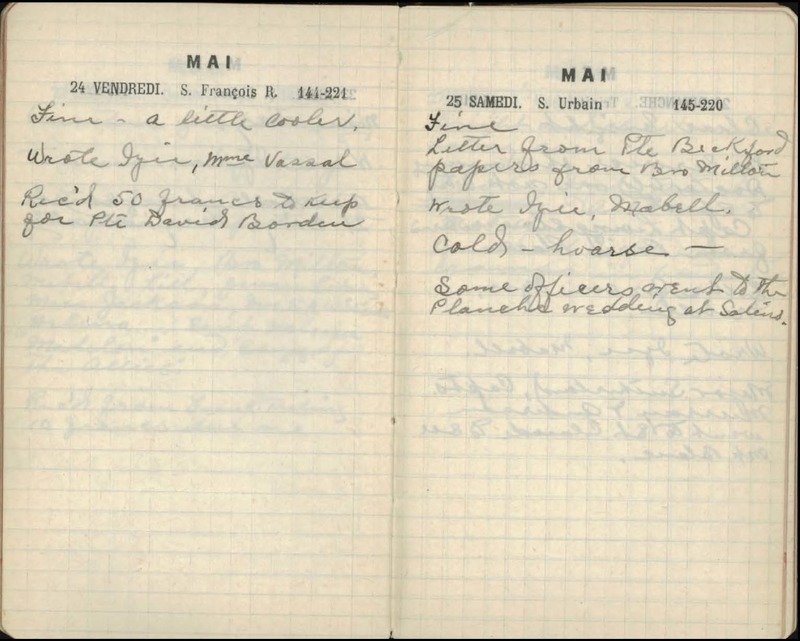 MAI
24 VENDREDI. S. François R. 144-221
Fine - a little cooler.
Wrote Izie, Mme Vassal
Rec'd 50 francs to keep
for Pte David Borden
MAI
25 SAMEDI. S. Urbain 145-220
Fine
Letter from Pte Beckford
papers from Bro Milton
Wrote Izie, Mabell.
Cold - hoarse —
Some officers went to the
Planche wedding at Salins.